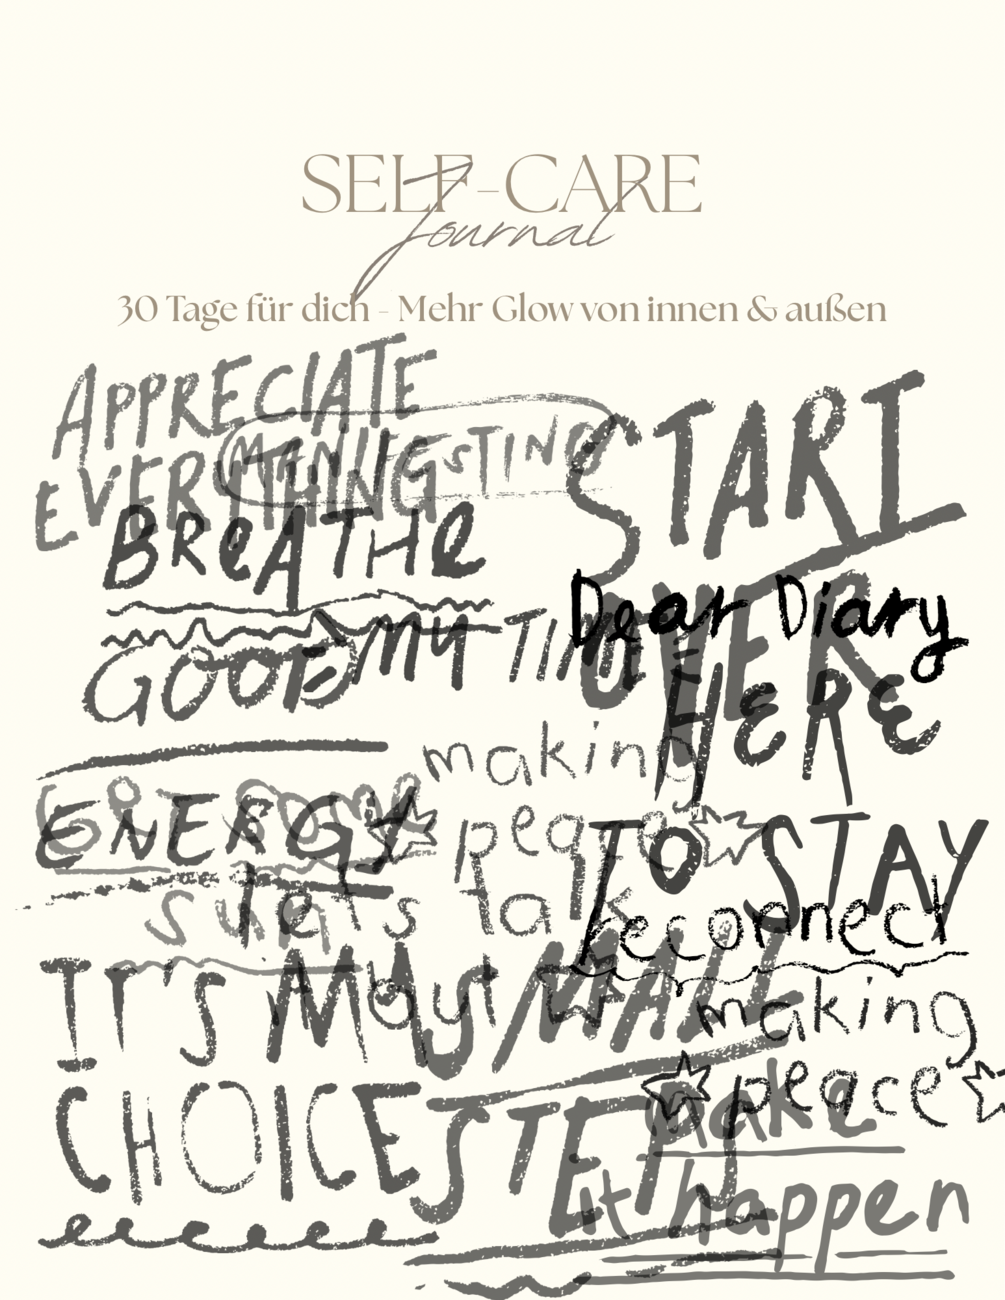 SELF-CARE
Journal
30 Tage für dich - Mehr Glow von innen & außen
APPRECIATE
EVERYTHING
MANIFESTING
BREATHE
START
OVER
Dear Diary
GOOD
ENERGY
MY TIME
HERE
TO STAY
making
peace
get some
sun
let's talk
about it
reconnect
IT'S MY
CHOICE
SMALL
STEPS
making
peace
make
it happen